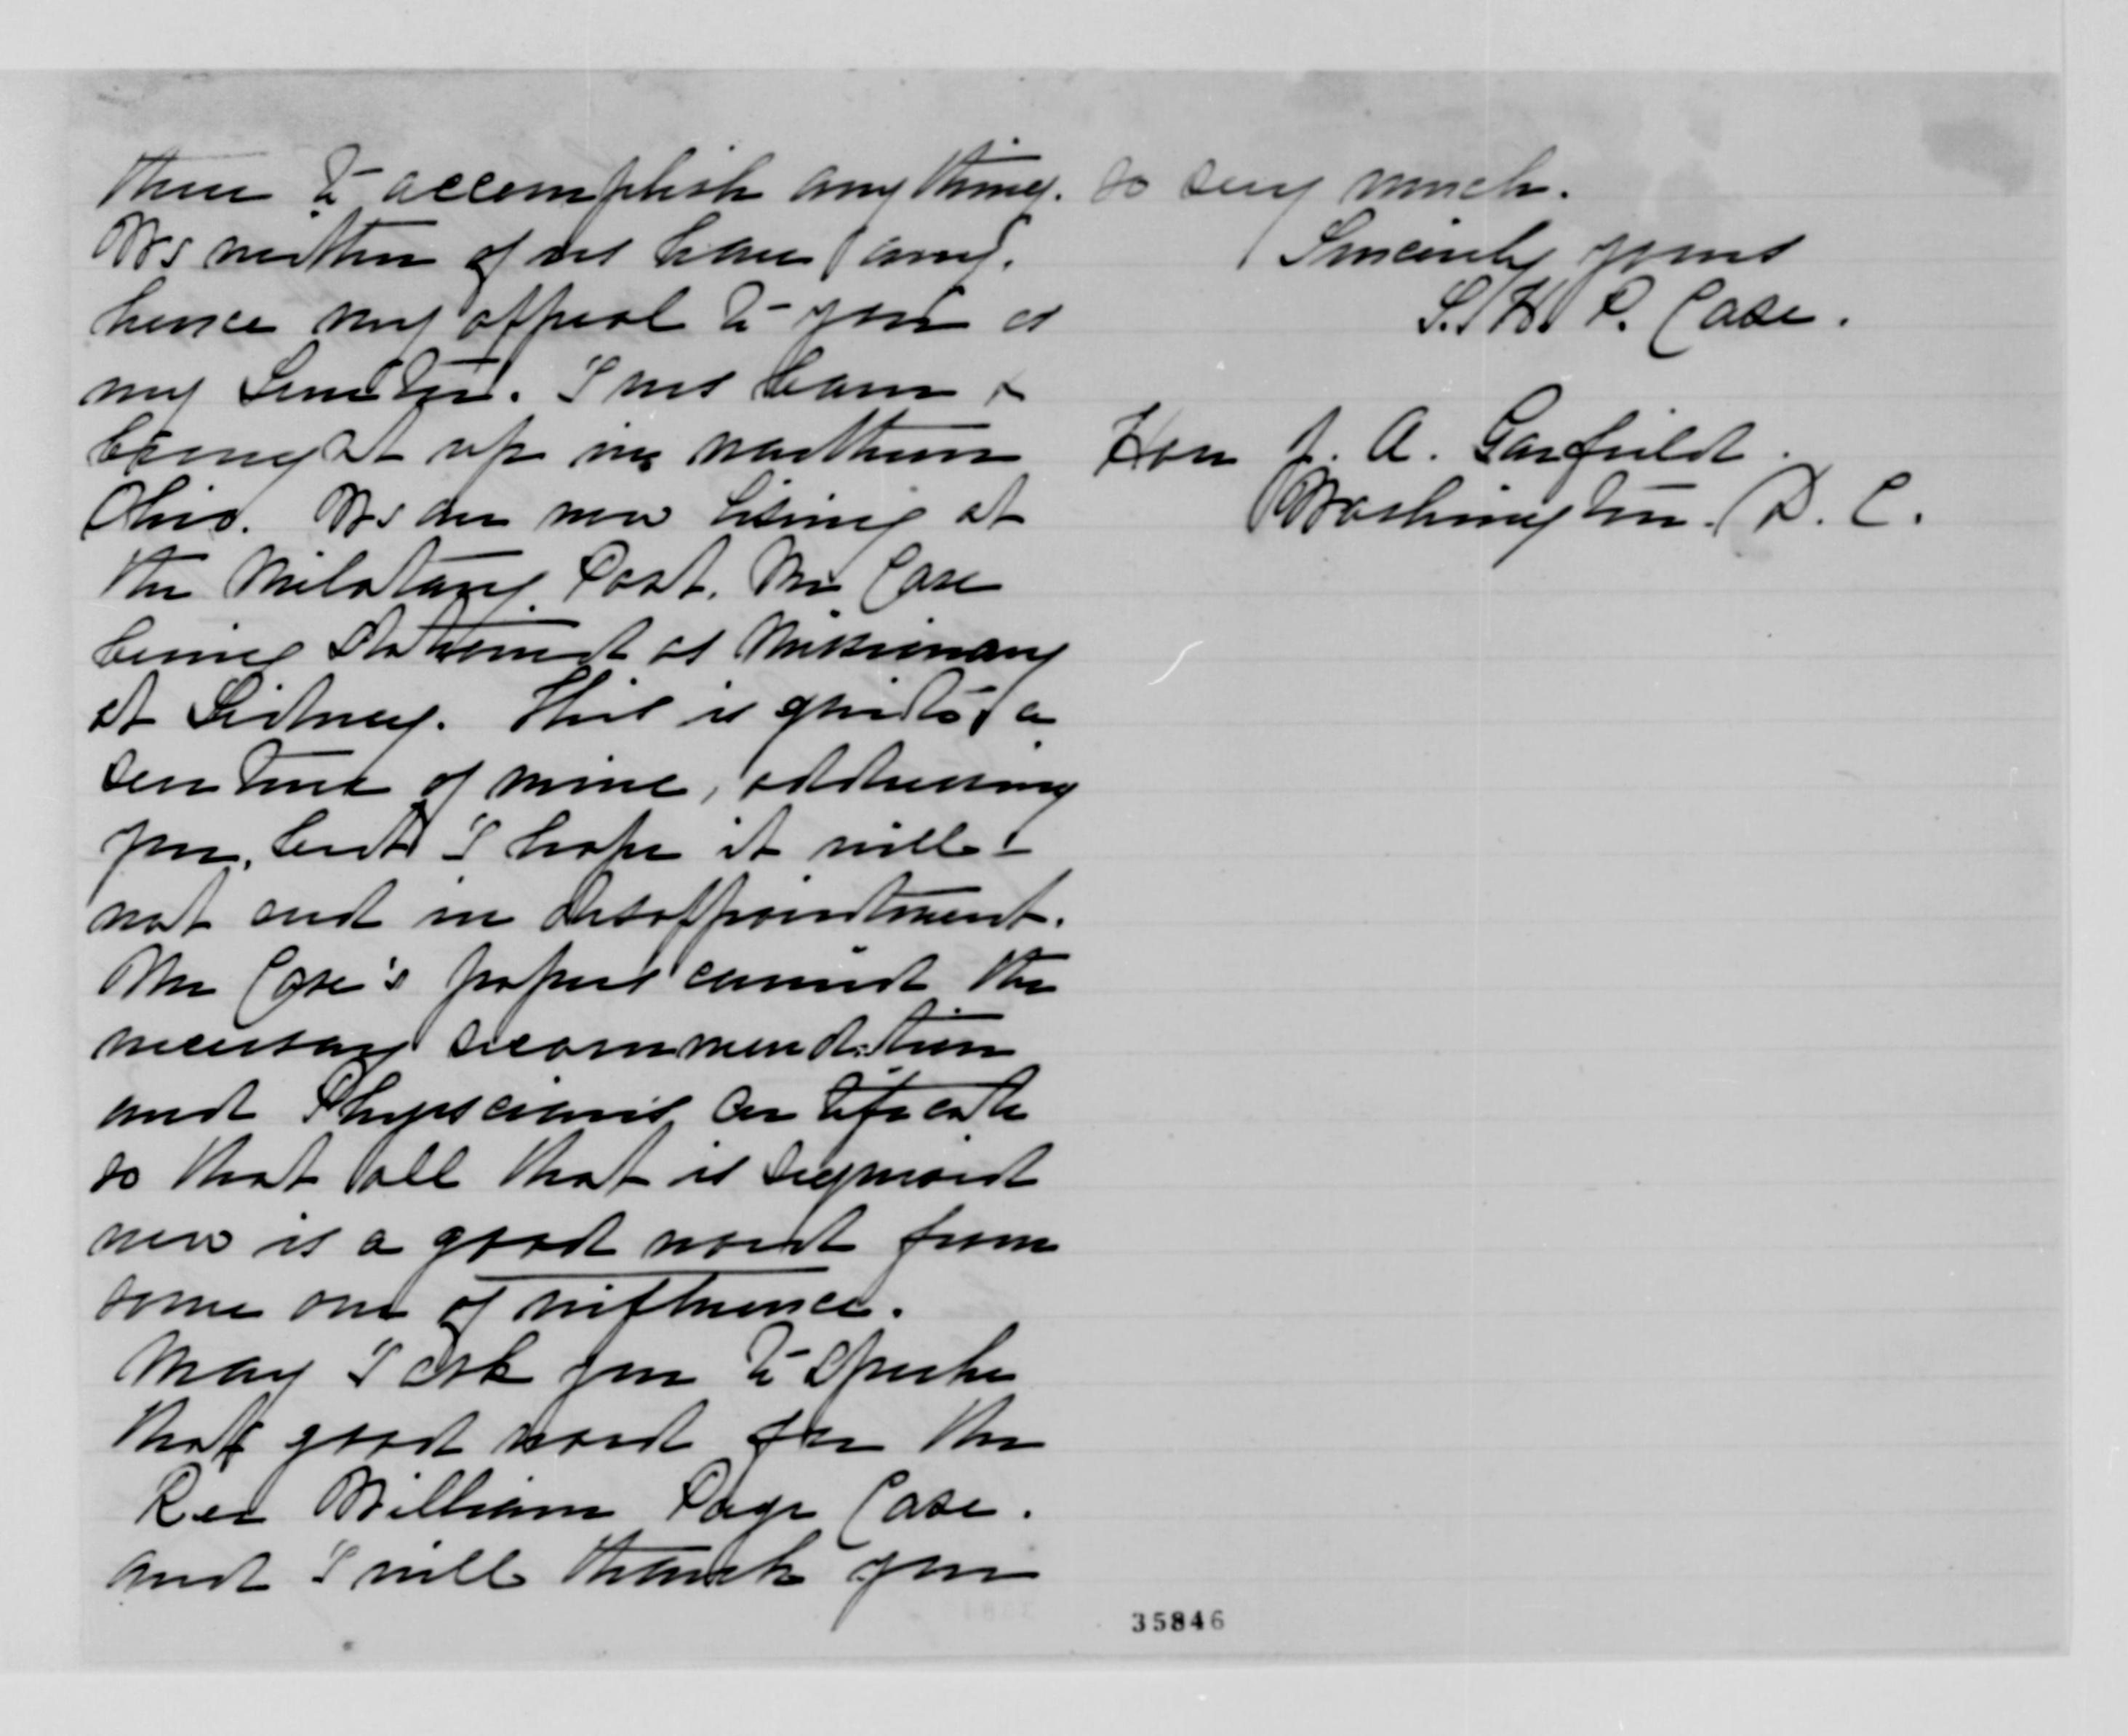 there to accomplish any thing.
We neither of us have any.
hence my appeal to you as
my Senator. I was born &
brought up in northern
Ohio. We are now living at
the Military Post. Mr Case
being stationed as Missionary
at Sidney. This is quite a
venture of mine, addressing
you, but I hope it will
not end in disappointment.
Mr Case's papers carried the
necessary recommendation
and Physician's certificate
so that all that is required
now is a good word from
some one of influence.
May I ask you to speak
that good word for the
Rev William Page Case.
and I will thank you
so very much.
Sincerely yours
S. H. P. Case.
Hon J. A. Garfield.
Washington. D. C.
35846